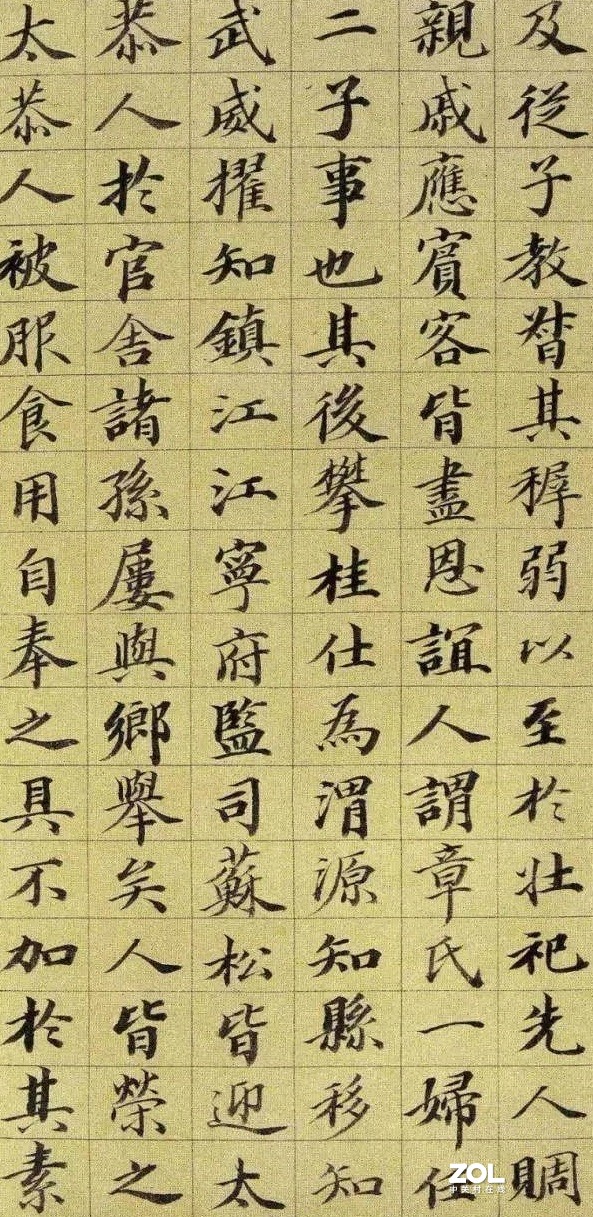 及從子教督其穉弱以至於壯祀先人賙
親戚應賓客皆盡恩誼人謂章氏一婦任
二子事也其後攀桂仕為渭源知縣移知
武威擢知鎮江江寧府監司蘇松皆迎太
恭人於官舍諸孫屢與鄉舉矣人皆榮之
太恭人被服食用自奉之具不加於其素
ZOL
中关村在线